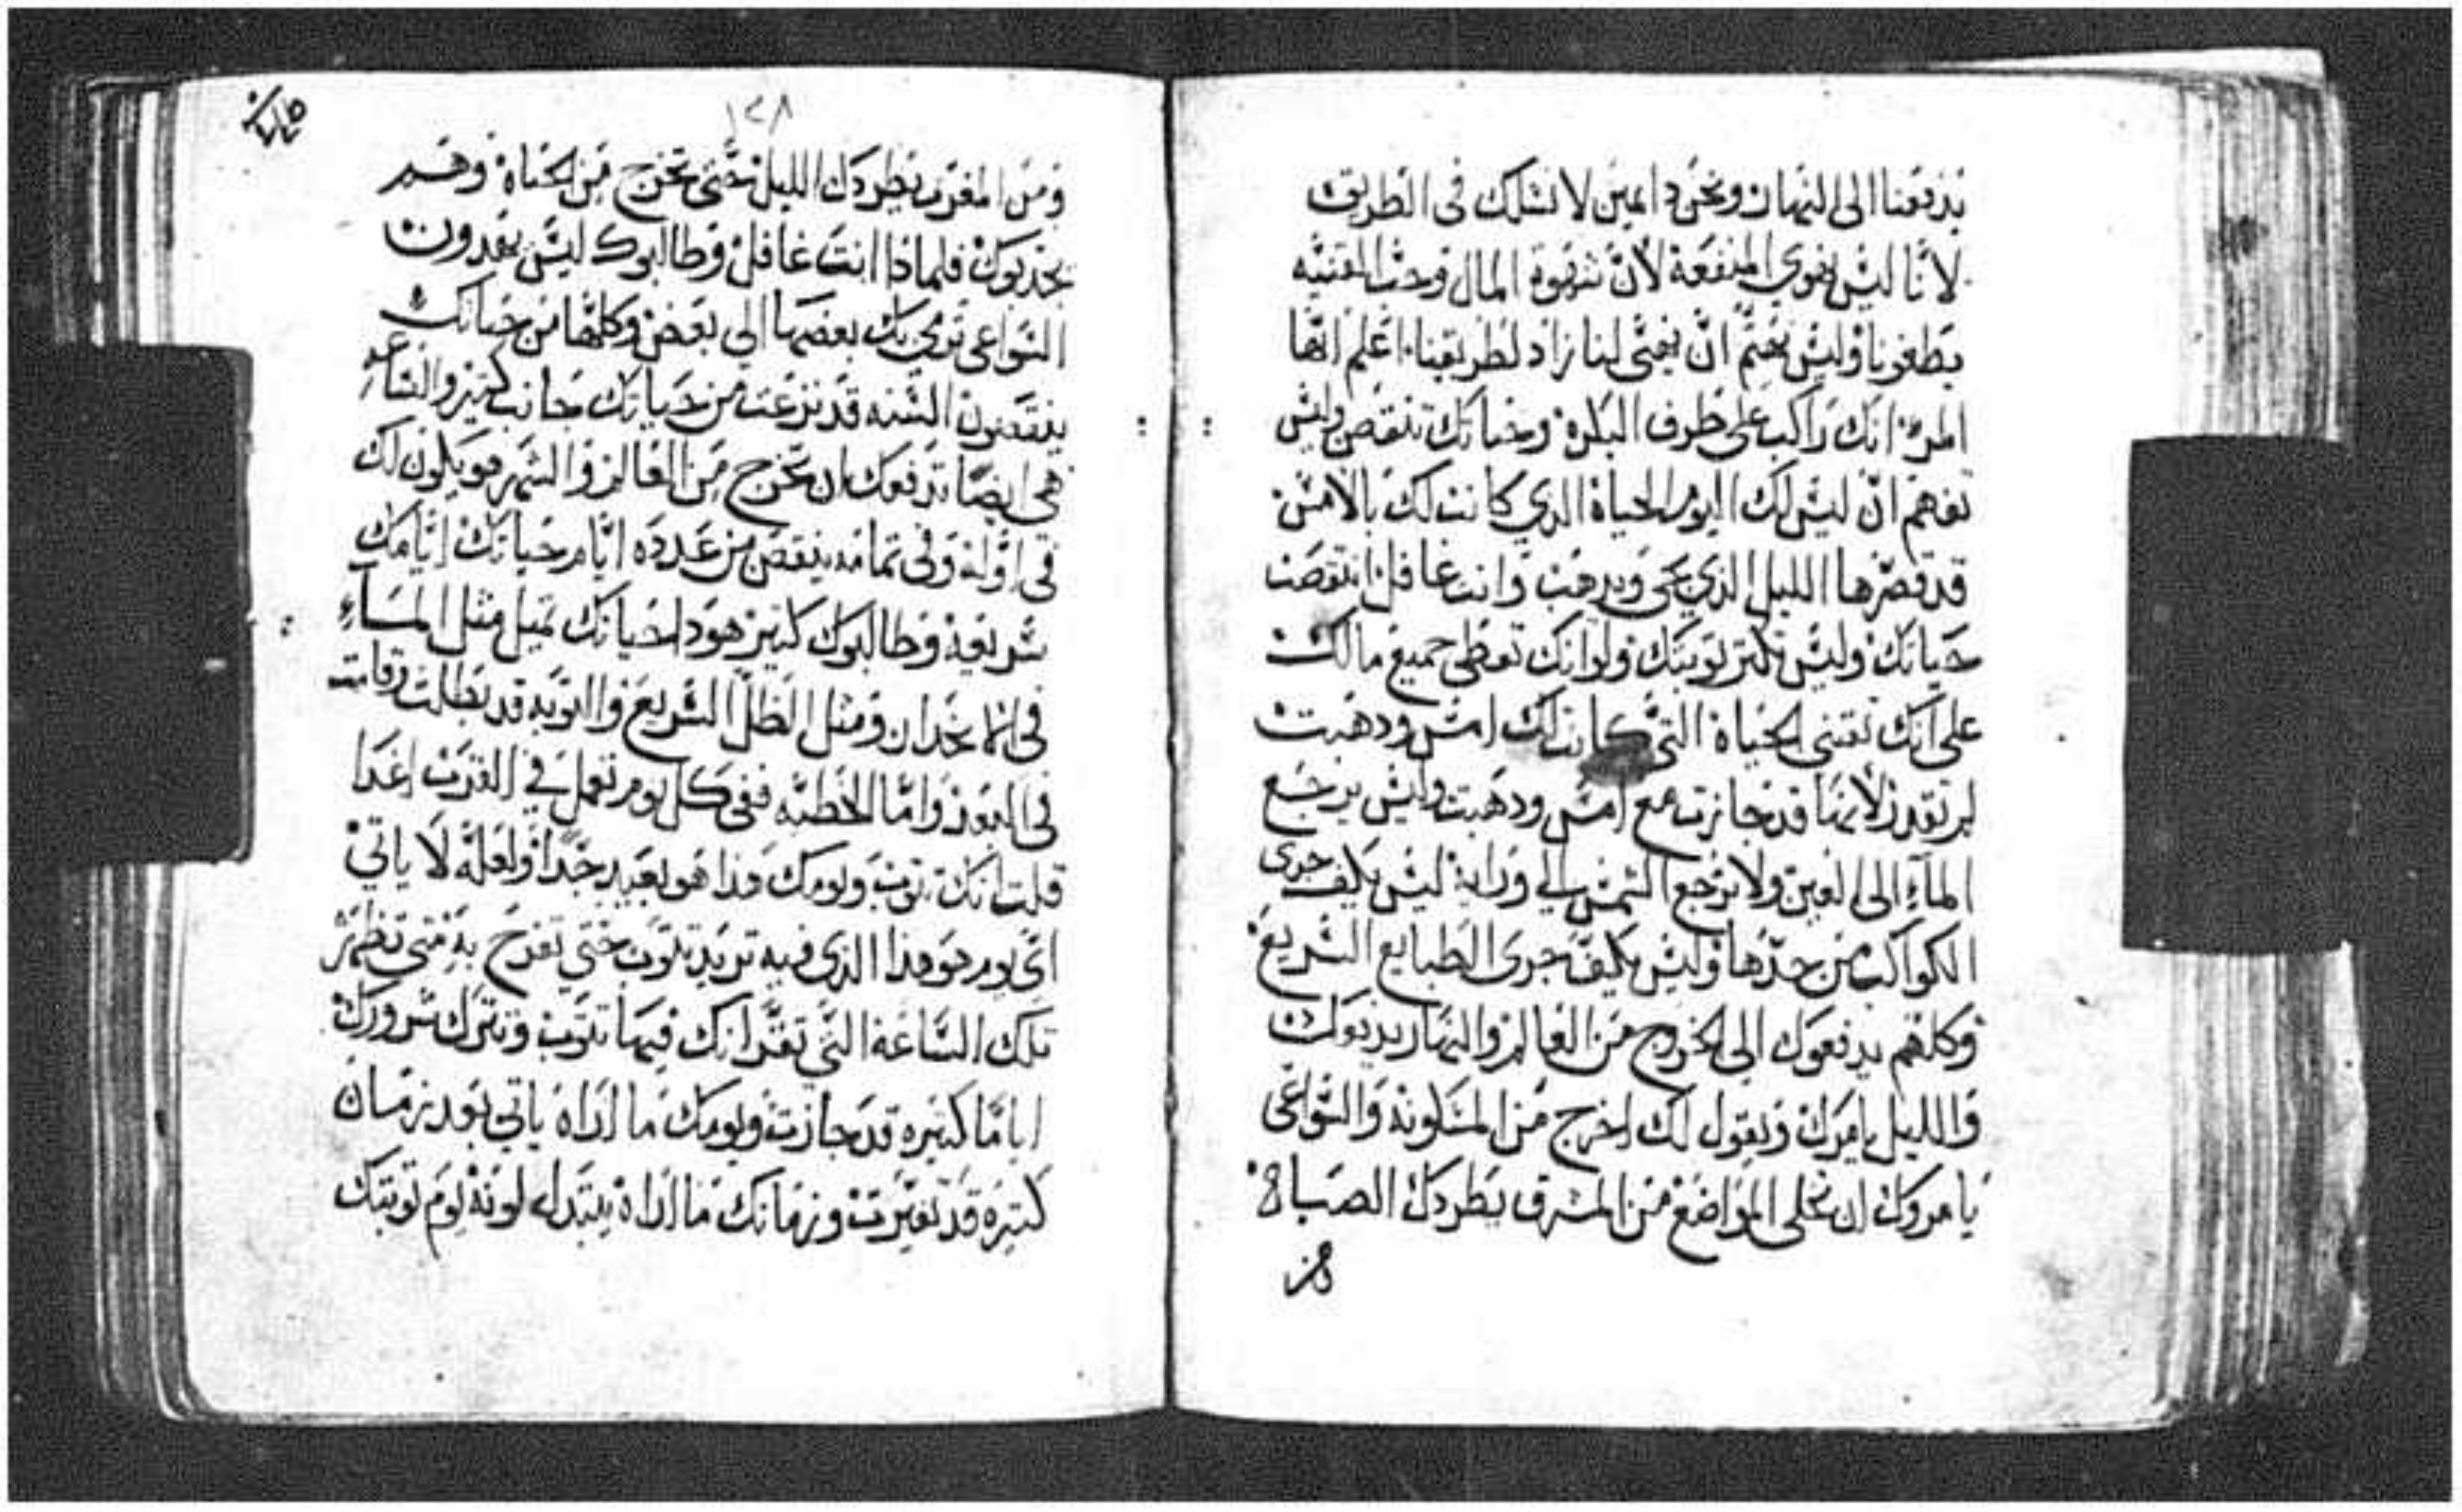 يدفعنا الى النهار ونحن دايمين لا نسلك فى الطريق
لانا ليس نهوي المنفعة لان شهوة المال وحب القنيه
يطغونا وليس نهتم ان نقتنى لنا زاد لطريقنا اعلم ايها
المرء انك راكب على ظرف البكرة وحياتك تنقص وليس
تفهم ان ليس لك اليوم الحياة الذي كانت لك بالامس
قد قصرها الليل الذي يجى ويذهب وانت غافل انتقصت
حياتك وليس تكتر توبتك ولو انك تعطى جميع مالك
على انك تقتنى الحياة التى كانت لك امس ودهبت
لم تقدر لانها قد جازت مع امس ودهبت وليس يرجع
الماء الى العين ولا ترجع الشمس الي ورايه ليس يكف جرى
الكواكب من حدها وليس يكف جرى الطبايع السريع
وكلهم يدفعوك الى الخروج من العالم والنهار يديوك
والليل يامرك ويقول لك اخرج من المسكونه والسواعى
يامروك ان تخلى المواضع من المشرق يطردك الصباح
ومن
١٢٨
ومن المغرب يطردك الليل حتى تخرج من الحياة وهم
يجدبوك فلماذا انت غافل وطالبوك ليس يقدرون
السواعى ترمي بك بعضها الي بعض وكلها من حياتك
ينقصون السنه قد نزعت من حياتك جانب كتير والساعه
هى ايضا تدفعك ان تخرج من العالم والشهر هو يكون لك
فى اوله وفى تمامه ينقص من عدده ايام حياتك ايامك
سريعه وطالبوك كتير هودا حياتك تميل مثل المساء
فى انحدار ومثل الظل السريع والتوبه قد بطلت وقامت
فى البعد واما الخطيه ففى كل يوم تعمل في القرب غدا
قلت انك تتوب ويومك هذا هو بعيد جدا ولعله لا ياتي
اى يوم هو هذا الذى فيه تريد تتوب حتى تفرح به متى تظهر
تلك الساعة التى تقر انك فيها تتوب وتترك شرورك
اياما كتيره قد جازت ويومك ما اراه ياتي بعد زمان
كتيره قد تغيرت وزمانك ما اراه يتبدل لونه يوم توبتك